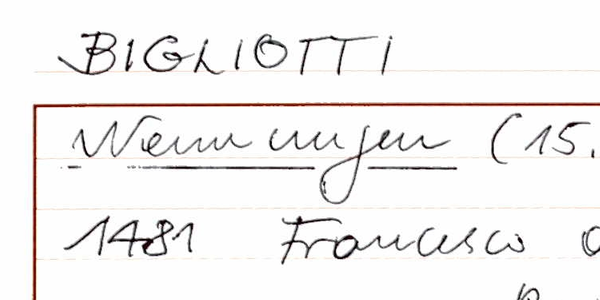 BIGLIOTTI
Nennungen (15.
1481 Francesco